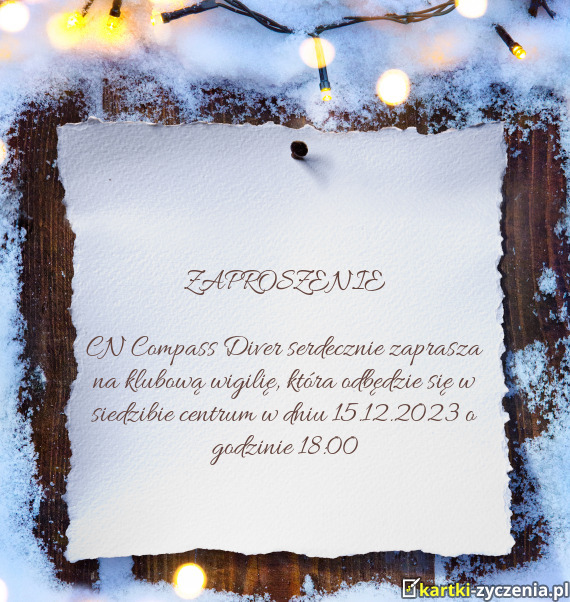 ZAPROSZENIE
CN Compass Diver serdecznie zaprasza
na klubową wigilię, która odbędzie się w
siedzibie centrum w dniu 15.12.2023 o
godzinie 18:00
kartki-zyczenia.pl